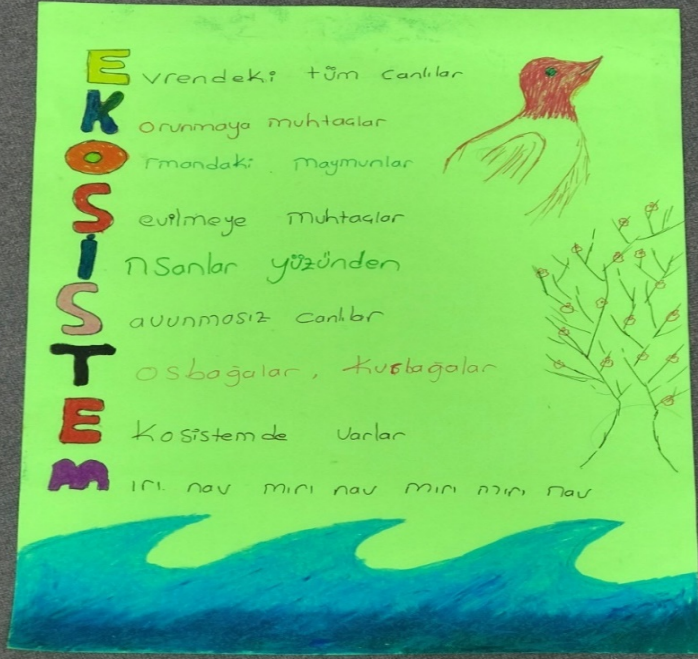 Evrendeki tüm canlılar
Korunmaya muhtaçlar
Ormandaki maymunlar
Sevilmeye muhtaçlar
İnsanlar yüzünden
Savunmasız canlılar
Tosbağalar, kurbağalar
Ekosistemde varlar
Mırı. nav mırı nav mırı mırı nav